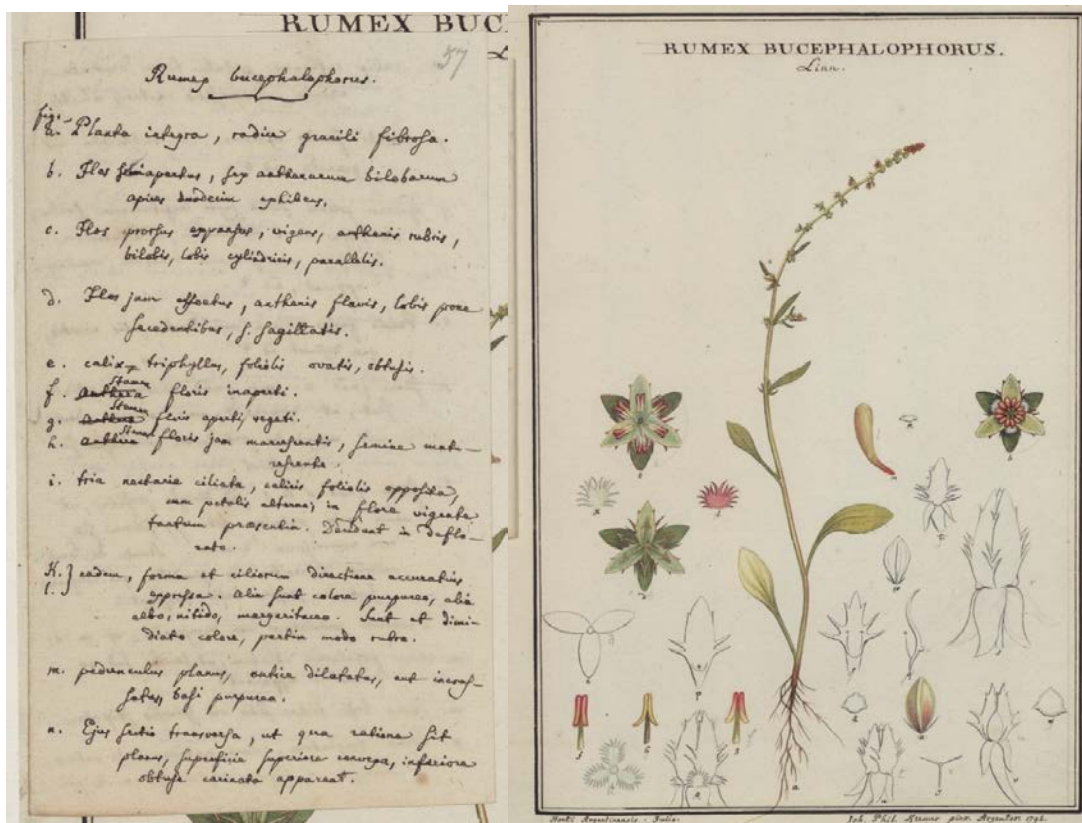 RUMEX BUC
57
Rumex bucephalophorus.
figs.
a. Planta integra, radice gracili fibrosa.
b. Flos semiapertus, sex antherarum bilobarum
apices duodecim exhibens.
c. Flos prorsus expansus, vigens, antheris rubris,
bilobis, lobis cylindricis, parallelis.
d. Flos jam effoetus, antheris flavis, lobis prone
secedentibus, s. sagittatis.
e. calix triphyllus, foliolis ovatis, obtusis.
f. Stamen floris inaperti.
g. Stamen floris aperti, vegeti.
h. Stamen floris jam marcescentis, semine matu-
rescente.
i. tria nectaria ciliata, calicis foliolis opposita,
cum petalis alterna, in flore vigente
tantum praesentia. Decidunt in deflo-
rato.
K. } eadem, forma et ciliorum directione accuratius
l. expressa. Alia sunt colore purpureo, alia
albo, nitido, margaritaceo. Sunt et dimi-
diato colore, partim modo rubro.
m. pedunculus planus, antice dilatatus, aut incras-
satus, basi purpurea.
n. Ejus sectio transversa, ut qua ratione sit
planus, superficie superiore convexa, inferiore
obtuse carinata appareat.
RUMEX BUCEPHALOPHORUS.
Linn.
Horti Argentinensis. Julio.
Joh. Phil. pinx. Argentor. 1796.